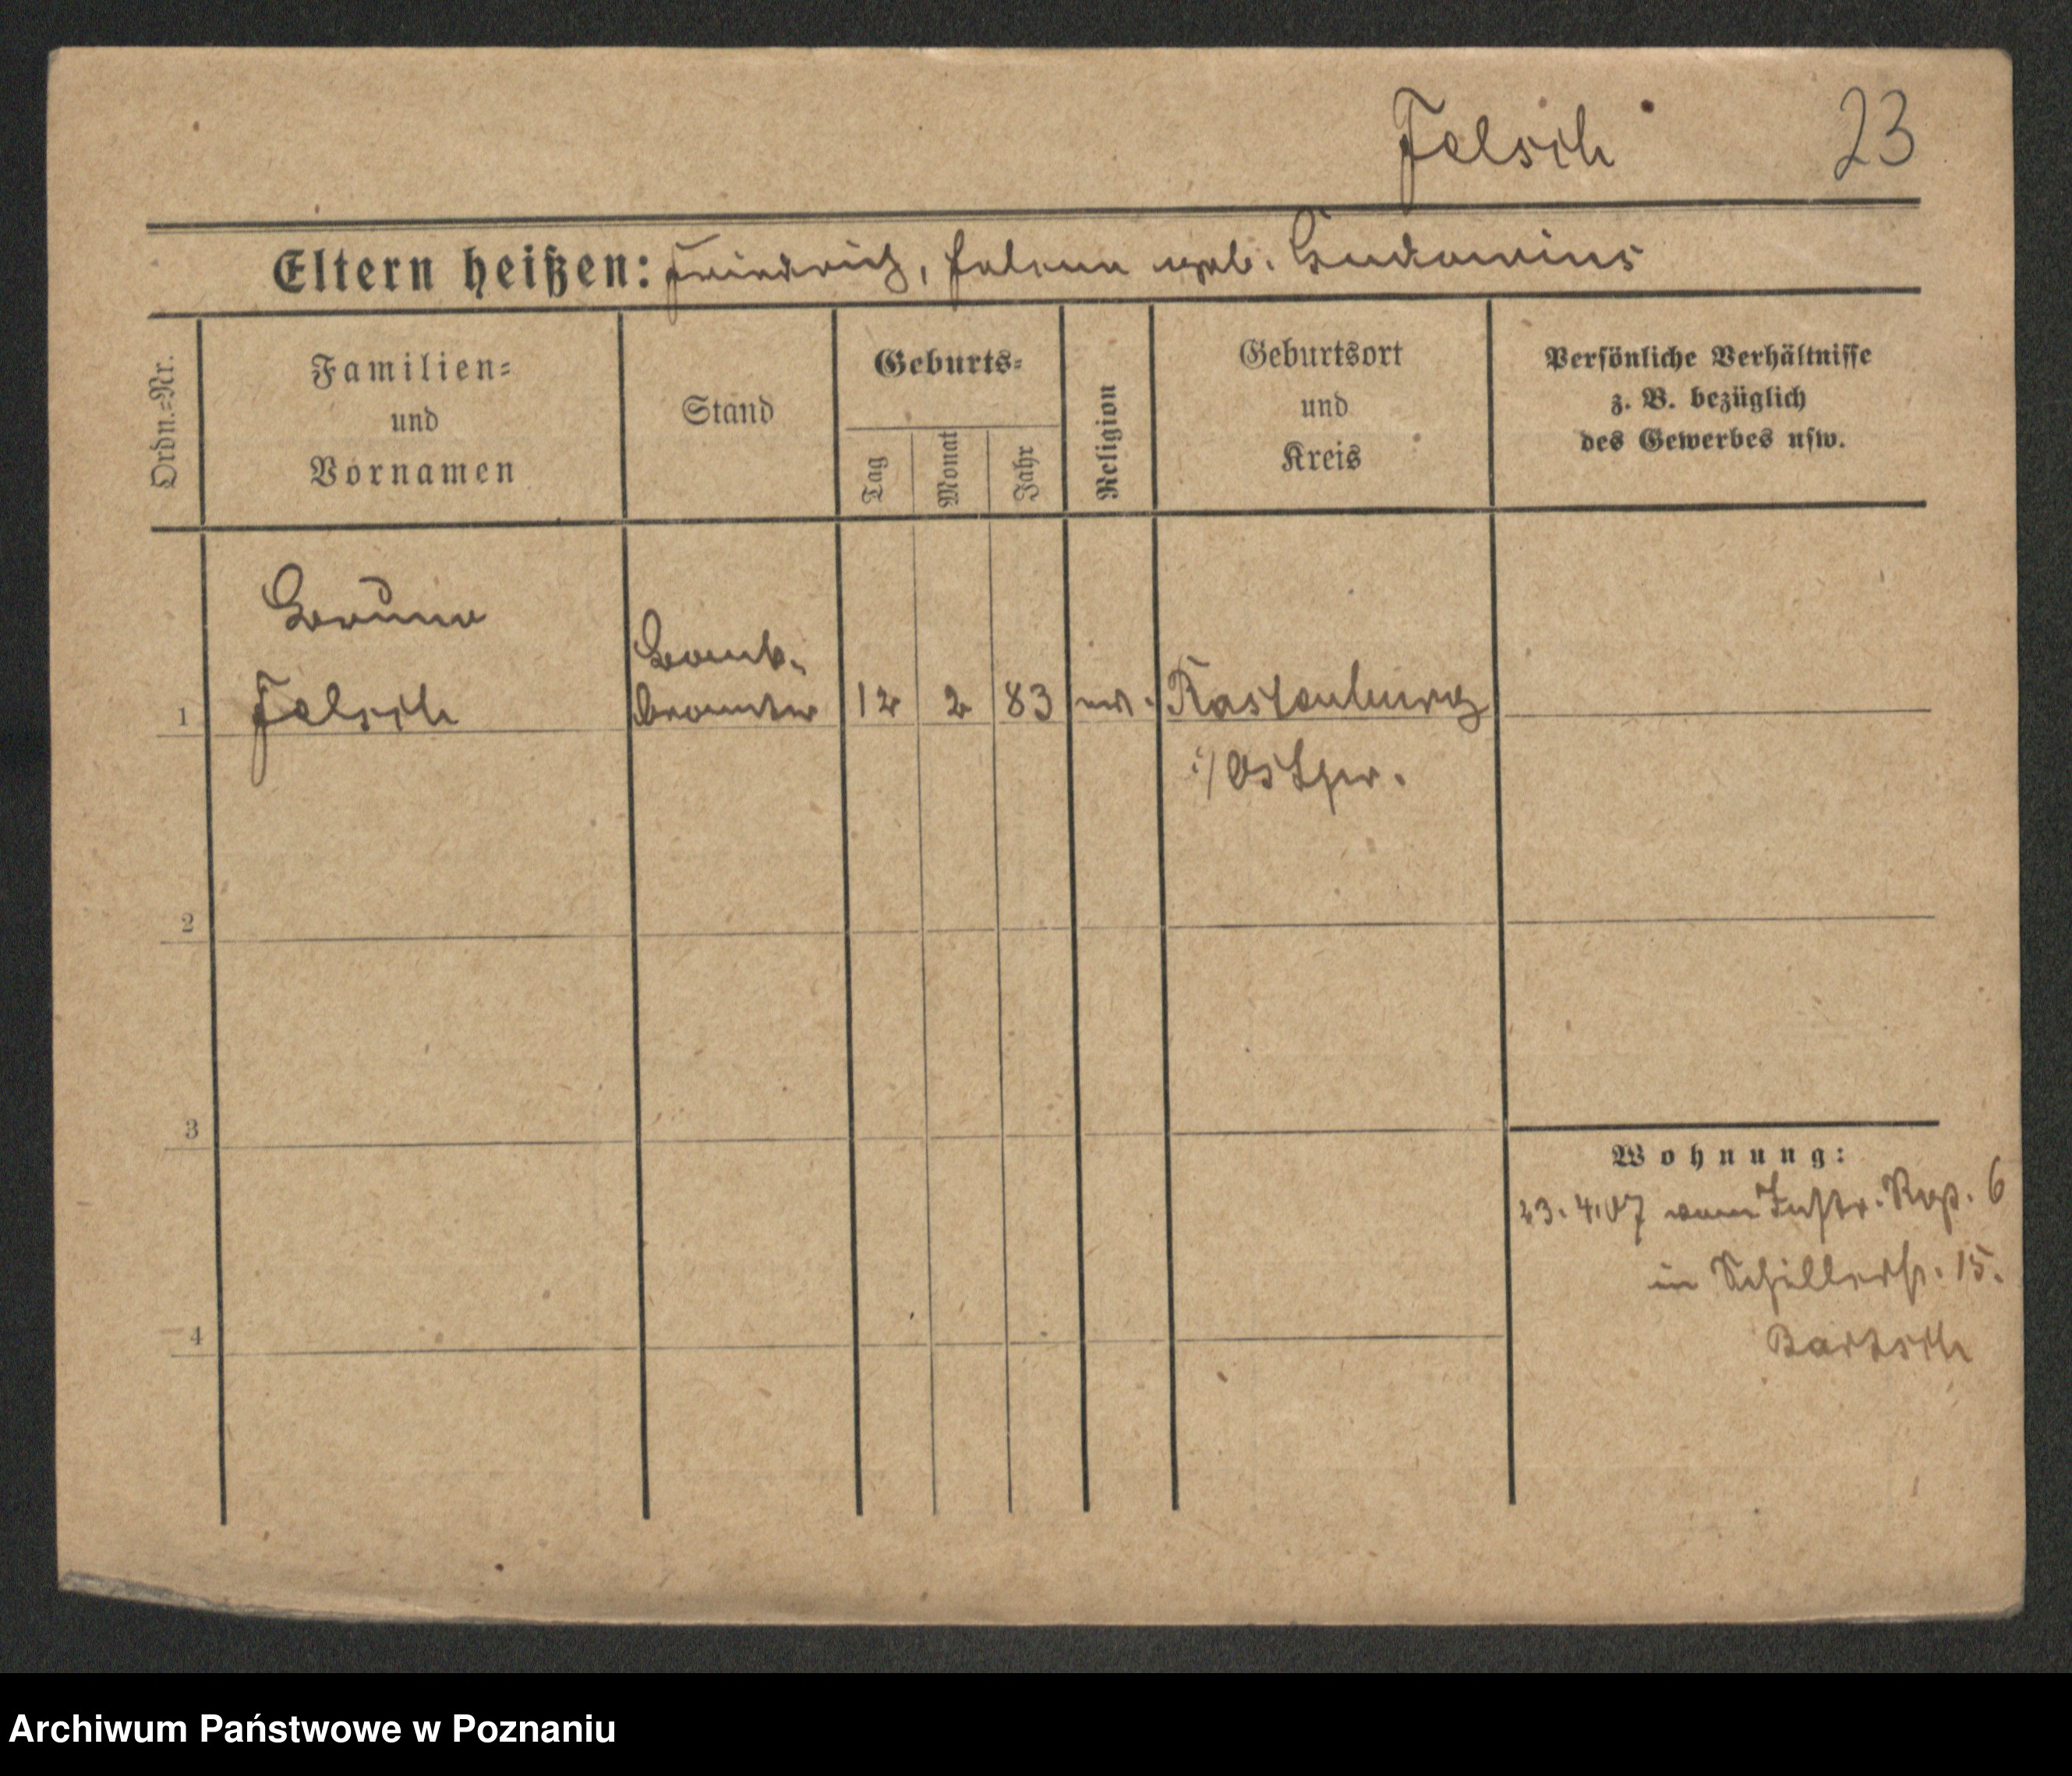 Felsch
23
Eltern heißen: Friedrich, Helene geb.
Ordn.=Nr.
Familien=
und
Vornamen
Stand
Geburts=
Tag
Monat
Jahr
Religion
Geburtsort
und
Kreis
Persönliche Verhältnisse
z. B. bezüglich
des Gewerbes usw.
Bruno
Felsch
Bank-
beamter
1
12 2 83 ev. Rastenburg
i/Ostpr.
2
3
4
Wohnung:
23.4.07 vom 6
in Schillerst. 15.
Bartsch
Archiwum Państwowe w Poznaniu